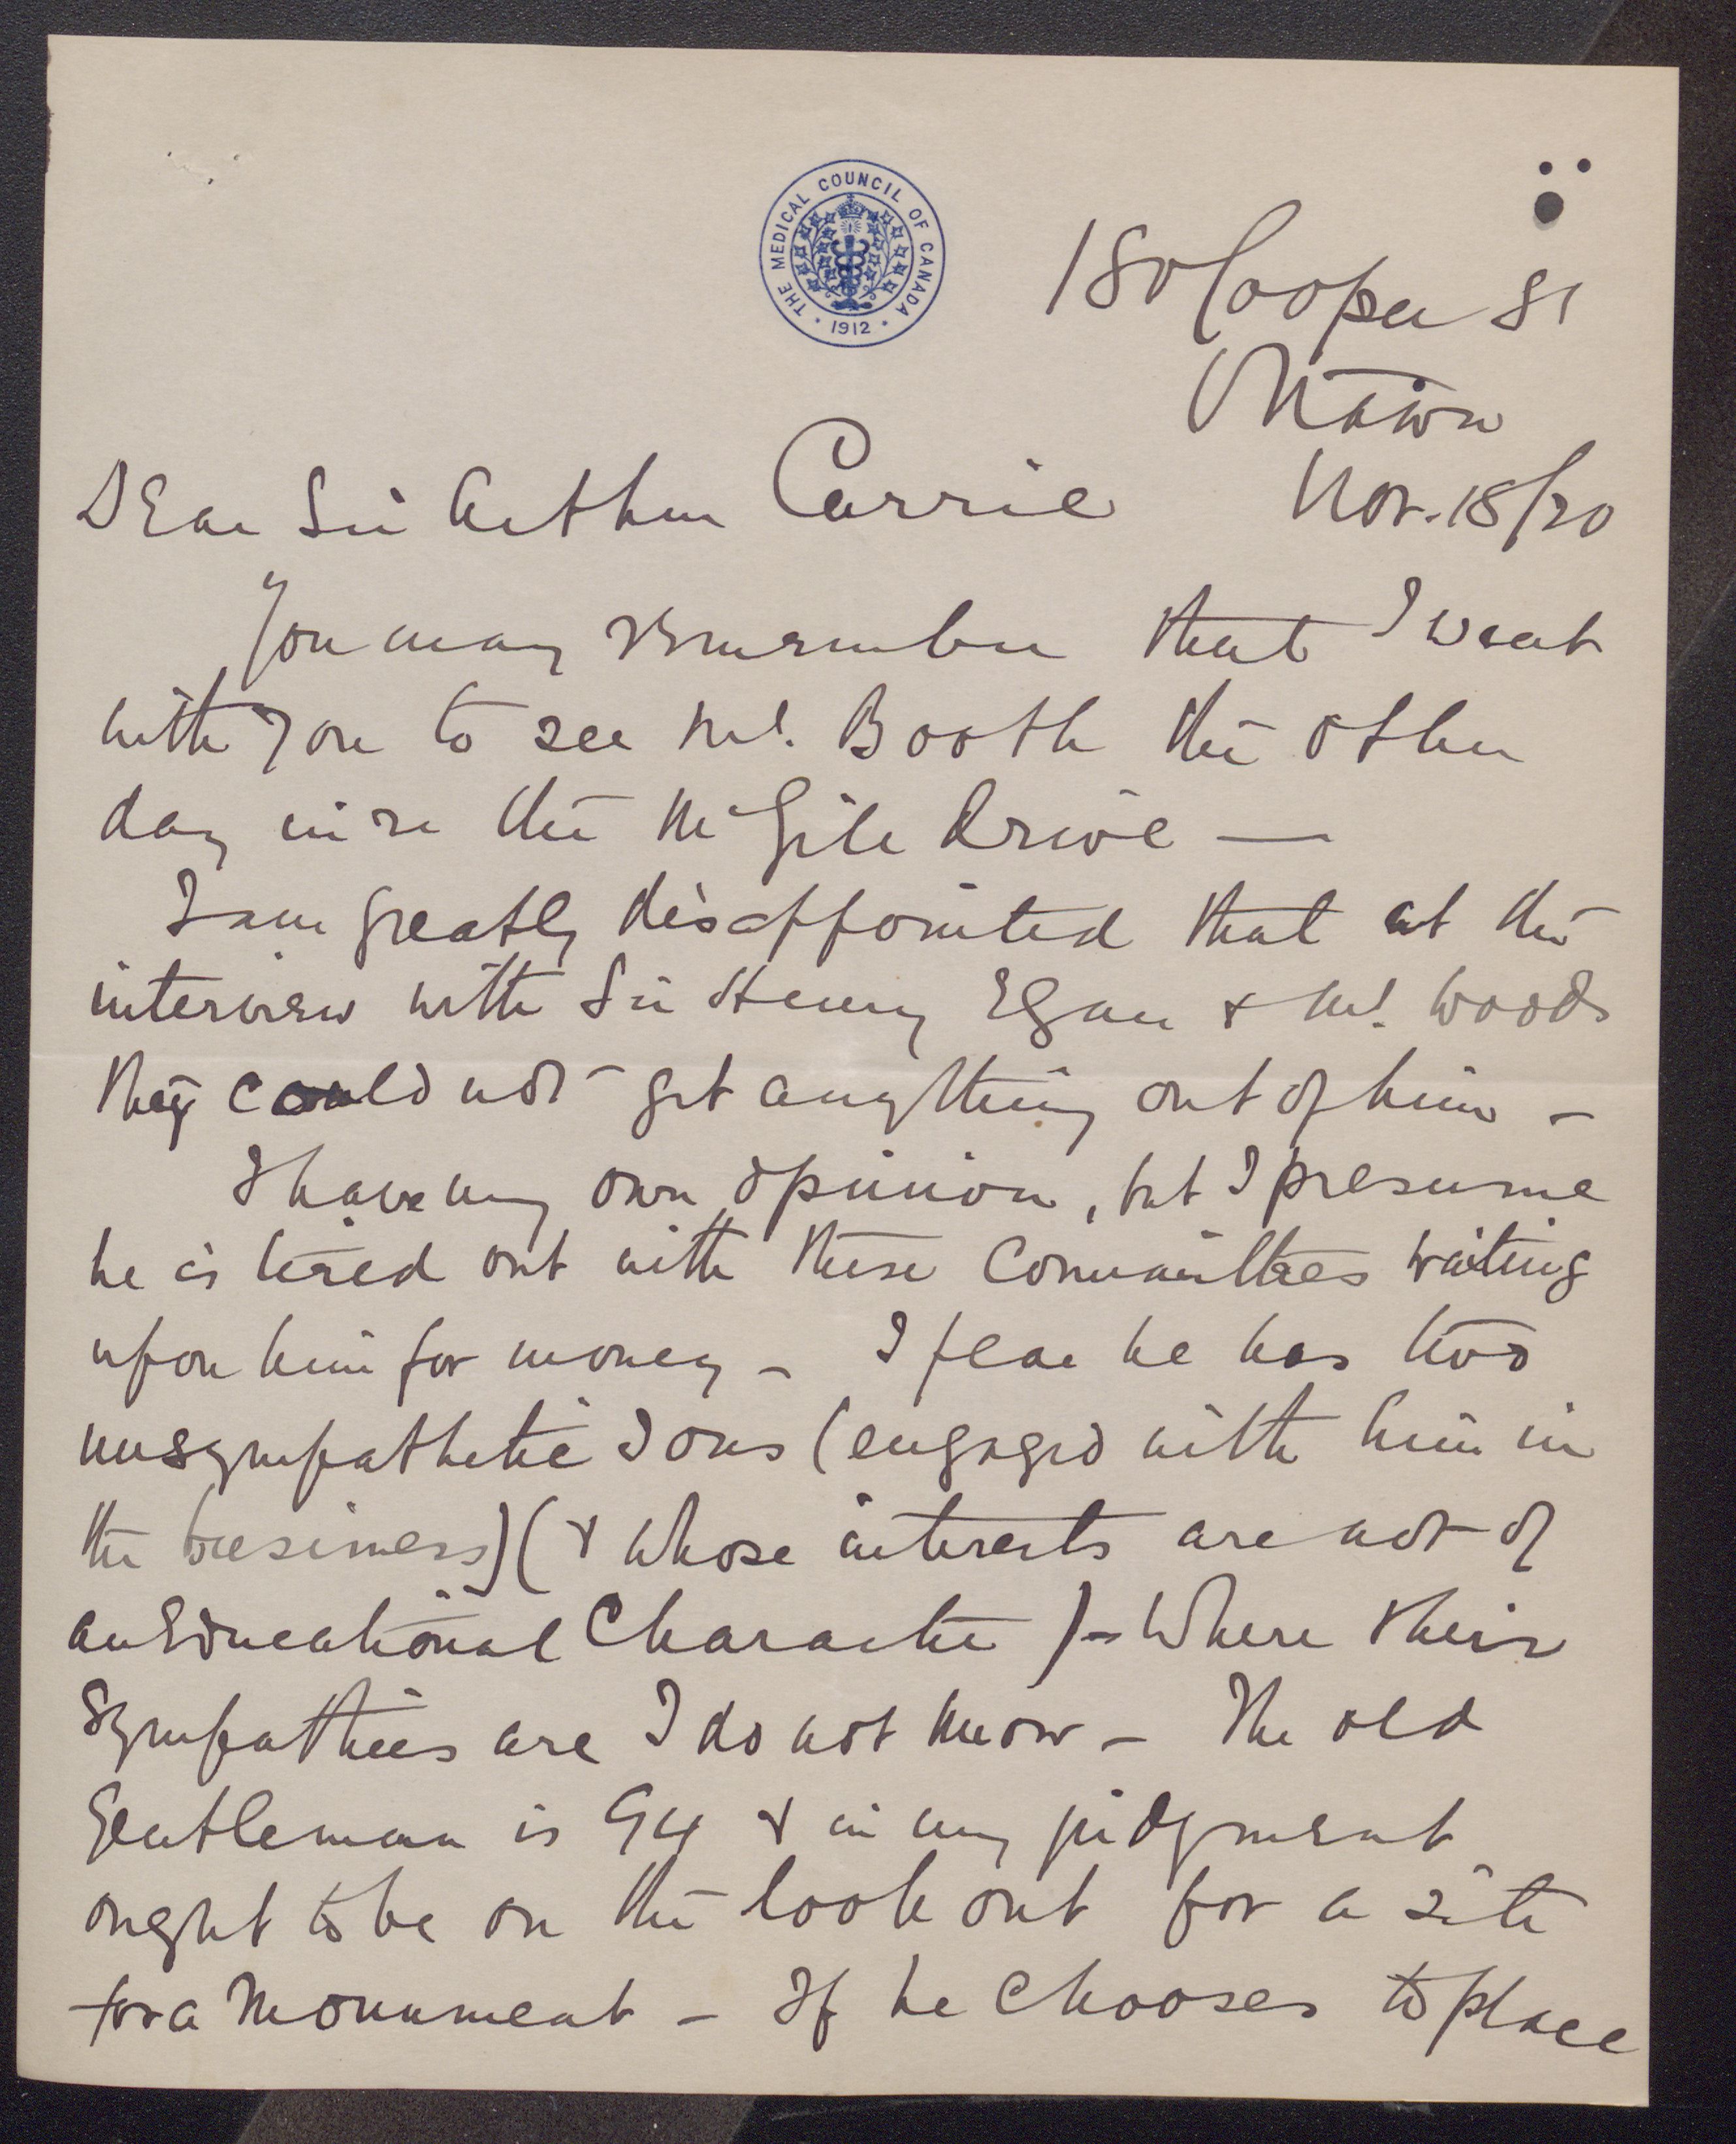 THE MEDICAL COUNCIL OF CANADA
• 1912 •
180 Cooper St
Ottawa
Nov. 18/20
Dear Sir Arthur Currie
You may remember that I went
with you to see Mr. Booth the other
day in re the McGill Drive —
I am greatly disappointed that at the
interview with Sir Henry Egan & Mr. Woods
they could not get anything out of him –
I have my own opinion, but I presume
he is tired out with these Committees waiting
upon him for money – I fear he has two
unsympathetic sons (engaged with him in
the business) (& whose interests are not of
an Educational Character) – Where their
Sympathies are I do not know – The old
Gentleman is 94 & in my judgment
ought to be on the look out for a site
for a Monument – If he chooses to place